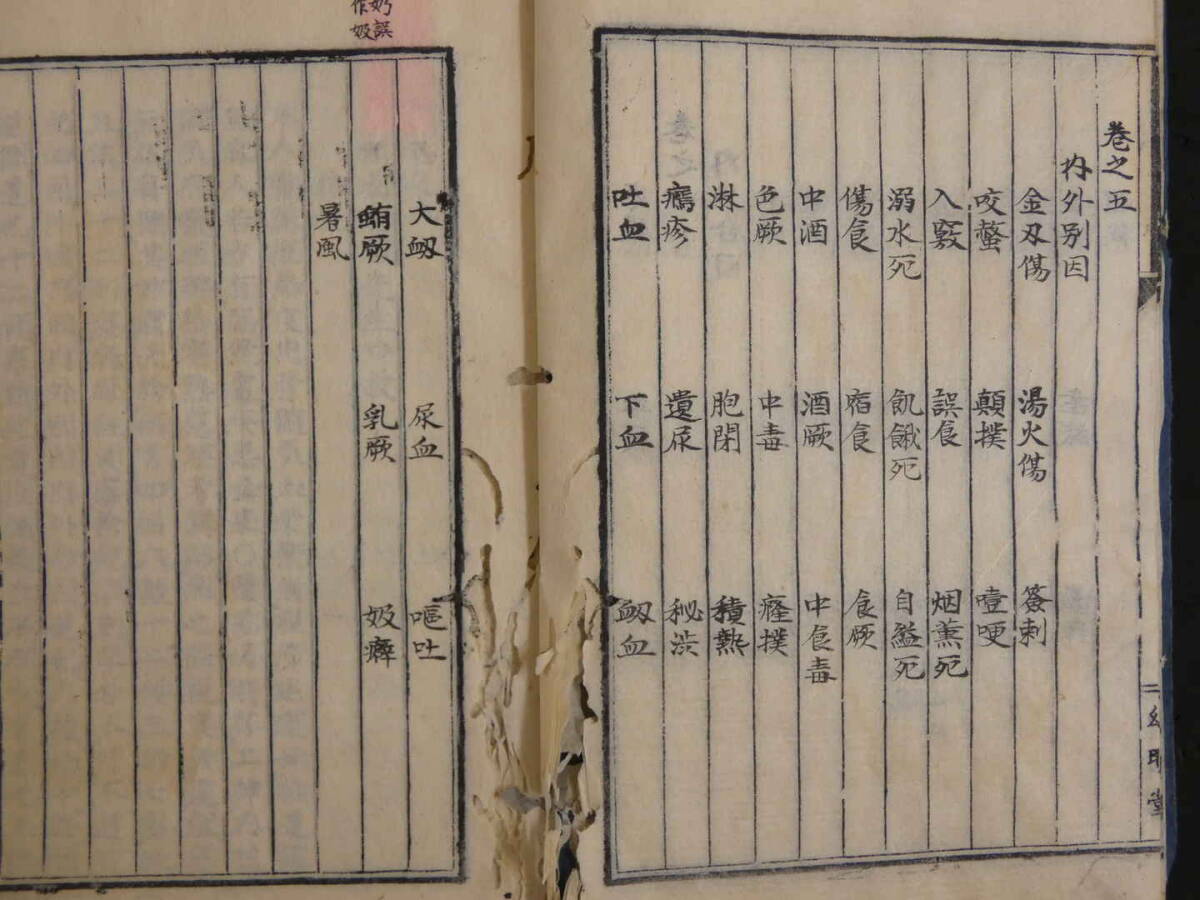 卷之五
内外別因
金刃傷 湯火傷 簽刺
咬螫 顛撲 噎哽
入竅 誤食 烟薰死
溺水死 飢餓死 自縊死
傷食 宿食 食厥
中酒 酒厥 中食毒
色厥 中毒 癃撲
淋 胞閉 積熱
癮疹 遺尿 秘渋
吐血 下血 衂血
大衂 尿血 嘔吐
蛕厥 乳厥 妭癖
暑風
誤
作妭